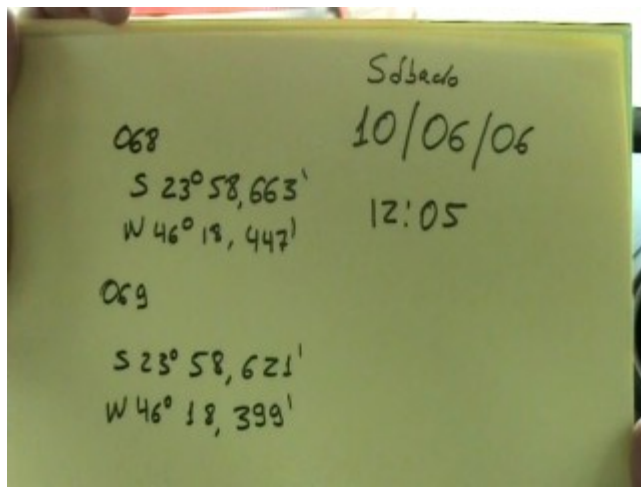 Sábado
10/06/06
12:05
068
S 23° 58,663'
W 46° 18,447'
069
S 23° 58,621'
W 46° 18,399'